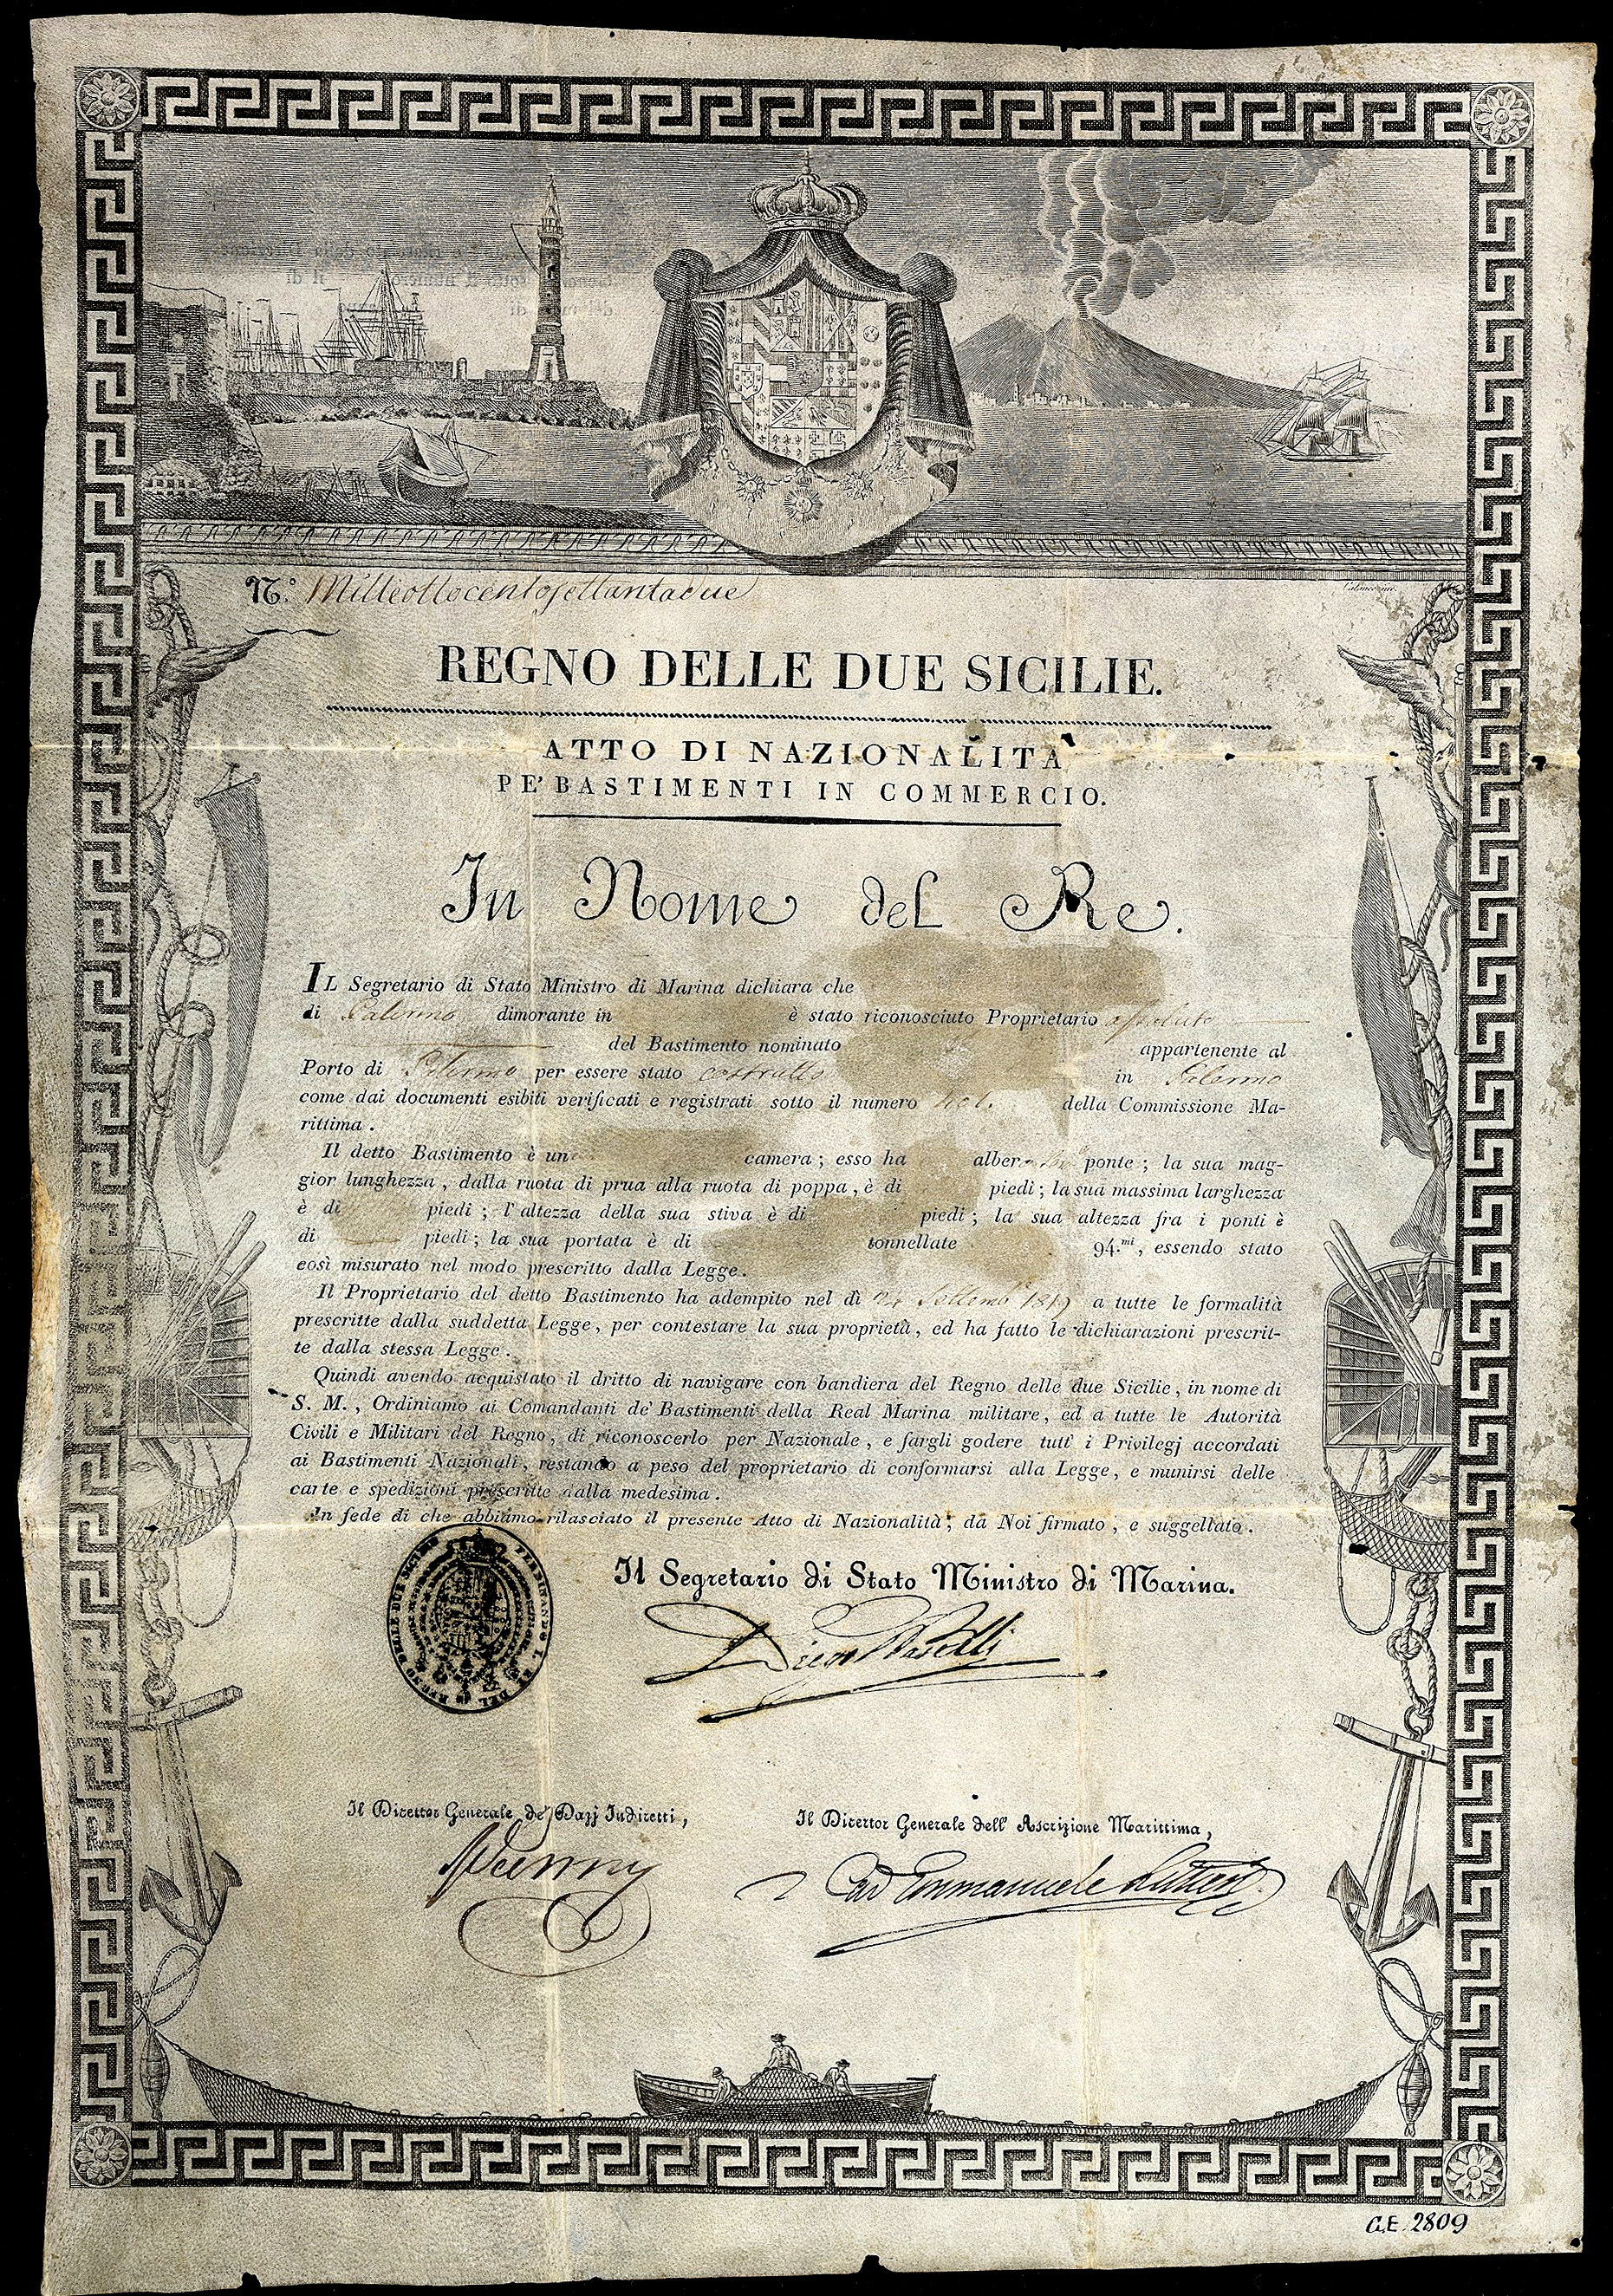 N.º Milleottocentosettantadue
REGNO DELLE DUE SICILIE.
ATTO DI NAZIONALITA'
PE' BASTIMENTI IN COMMERCIO.
In Nome del Re.
IL Segretario di Stato Ministro di Marina dichiara che
di Palermo dimorante in è stato riconosciuto Proprietario assoluto
del Bastimento nominato appartenente al
Porto di Palermo per essere stato costrutto in Palermo
come dai documenti esibiti verificati e registrati sotto il numero della Commissione Ma-
rittima .
Il detto Bastimento è un camera ; esso ha alber ponte ; la sua mag-
gior lunghezza , dalla ruota di prua alla ruota di poppa , è di piedi ; la sua massima larghezza
è di piedi ; l'altezza della sua stiva è di piedi ; la sua altezza fra i ponti è
di piedi ; la sua portata è di tonnellate 94.mi , essendo stato
così misurato nel modo prescritto dalla Legge .
Il Proprietario del detto Bastimento ha adempito nel dì Settemb 1819 a tutte le formalità
prescritte dalla suddetta Legge , per contestare la sua proprietà , ed ha fatto le dichiarazioni prescrit-
te dalla stessa Legge .
Quindi avendo acquistato il dritto di navigare con bandiera del Regno delle due Sicilie , in nome di
S. M. , Ordiniamo ai Comandanti de' Bastimenti della Real Marina militare , ed a tutte le Autorità
Civili e Militari del Regno , di riconoscerlo per Nazionale , e fargli godere tutt' i Privilegj accordati
ai Bastimenti Nazionali , restando a peso del proprietario di conformarsi alla Legge , e munirsi delle
carte e spedizioni prescritte dalla medesima .
In fede di che abbiamo rilasciato il presente Atto di Nazionalità ; da Noi firmato , e suggellato .
FERDINANDO I. RE DEL REGNO DELLE DUE SICILIE
Il Segretario di Stato Ministro di Marina.
Diego Naselli
Il Direttor Generale de' Dazj Indiretti ,
Il Direttor Generale dell' Ascrizione Marittima ,
Emmanuele
G.E. 2809